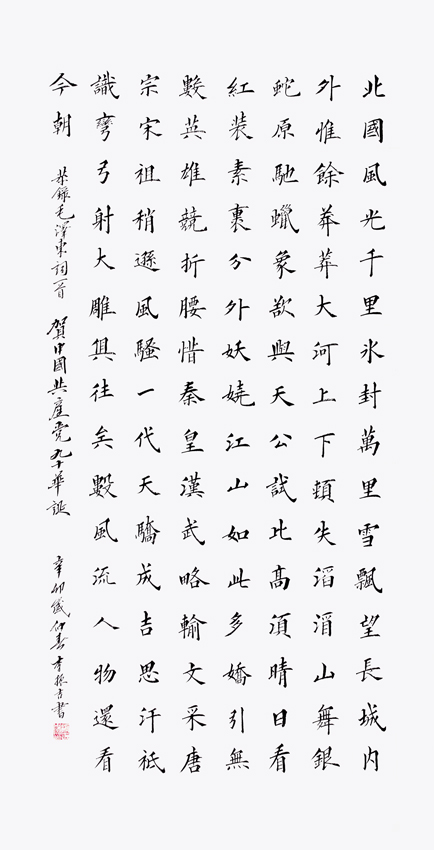 北國風光千里氷封萬里雪飄望長城内
外惟餘莽莽大河上下頓失滔滔山舞銀
蛇原馳蠟象欲與天公試比高須晴日看
紅装素裹分外妖嬈江山如此多嬌引無
數英雄競折腰惜秦皇漢武略輸文采唐
宗宋祖稍遜風騷一代天驕成吉思汗祇
識彎弓射大雕俱往矣數風流人物還看
今朝 恭錄毛澤東詞一首 賀中國共產党九十華誕 辛卯歲仲春李振吉書